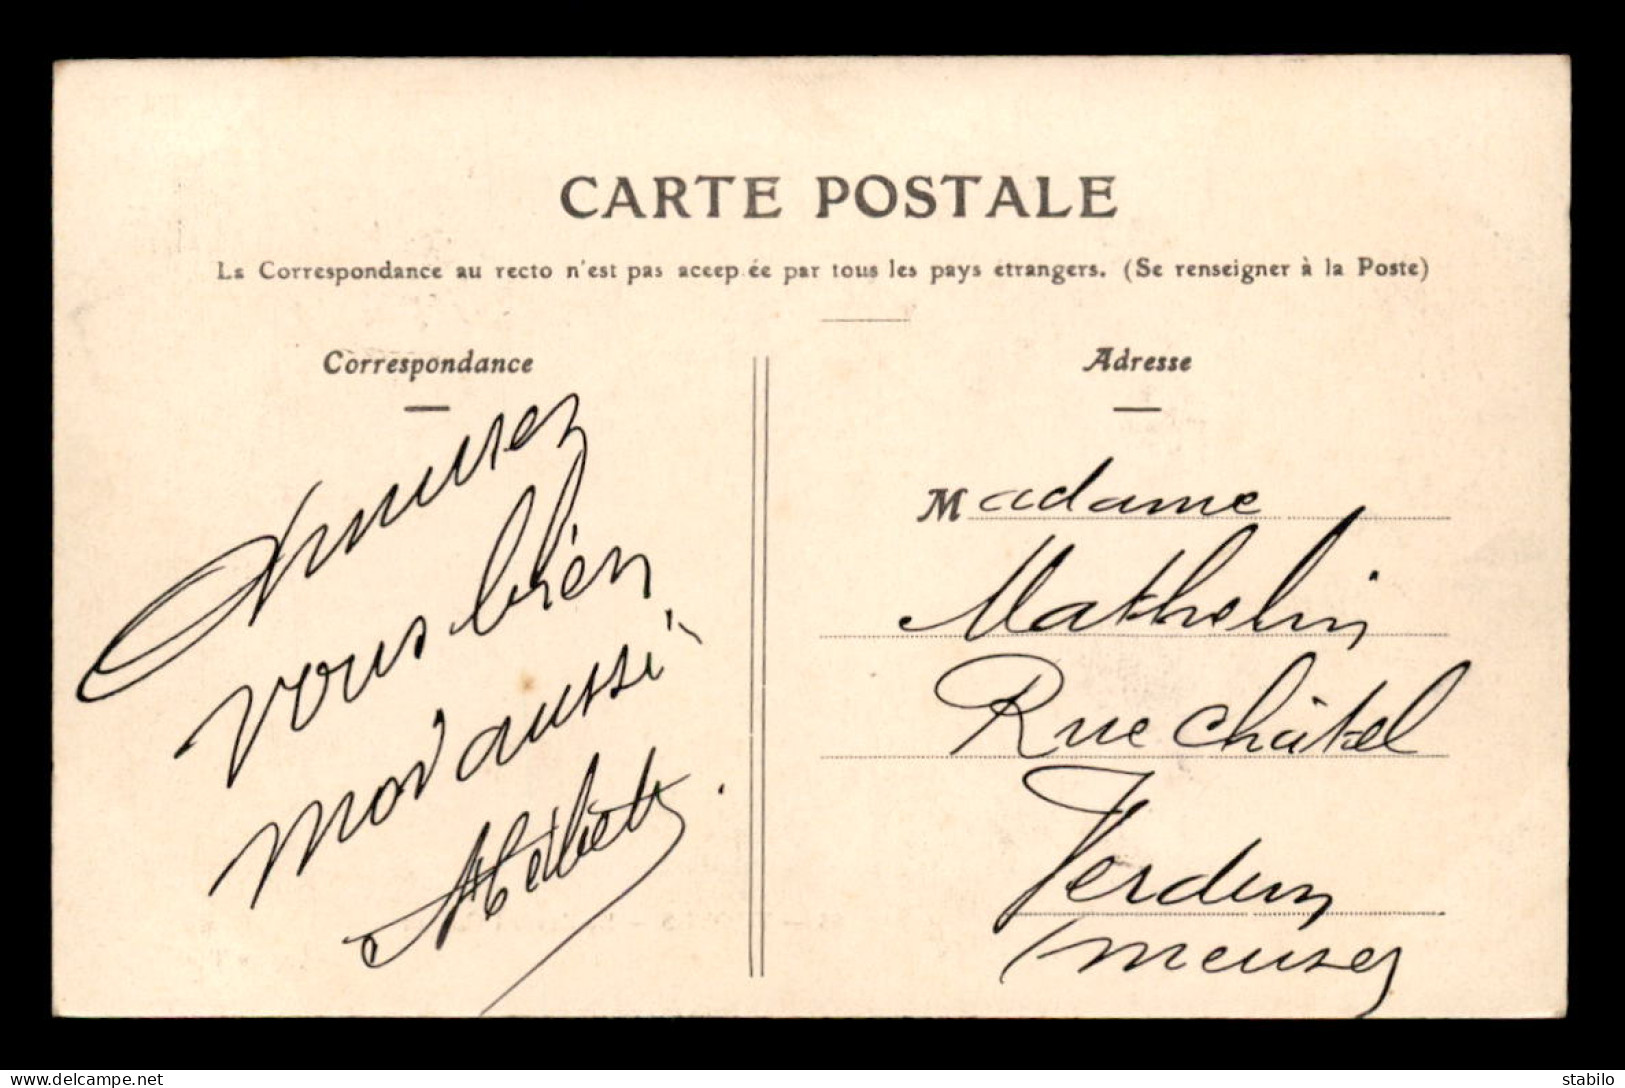 CARTE POSTALE
La Correspondance au recto n'est pas accep ée par tous les pays etrangers. (Se renseigner à la Poste)
Correspondance
Amusez
vous bien
moi aussi
Adresse
Madame
Mathelin
Rue Châtel
Verdun
(Meuse)
www.delcampe.net
stabilo